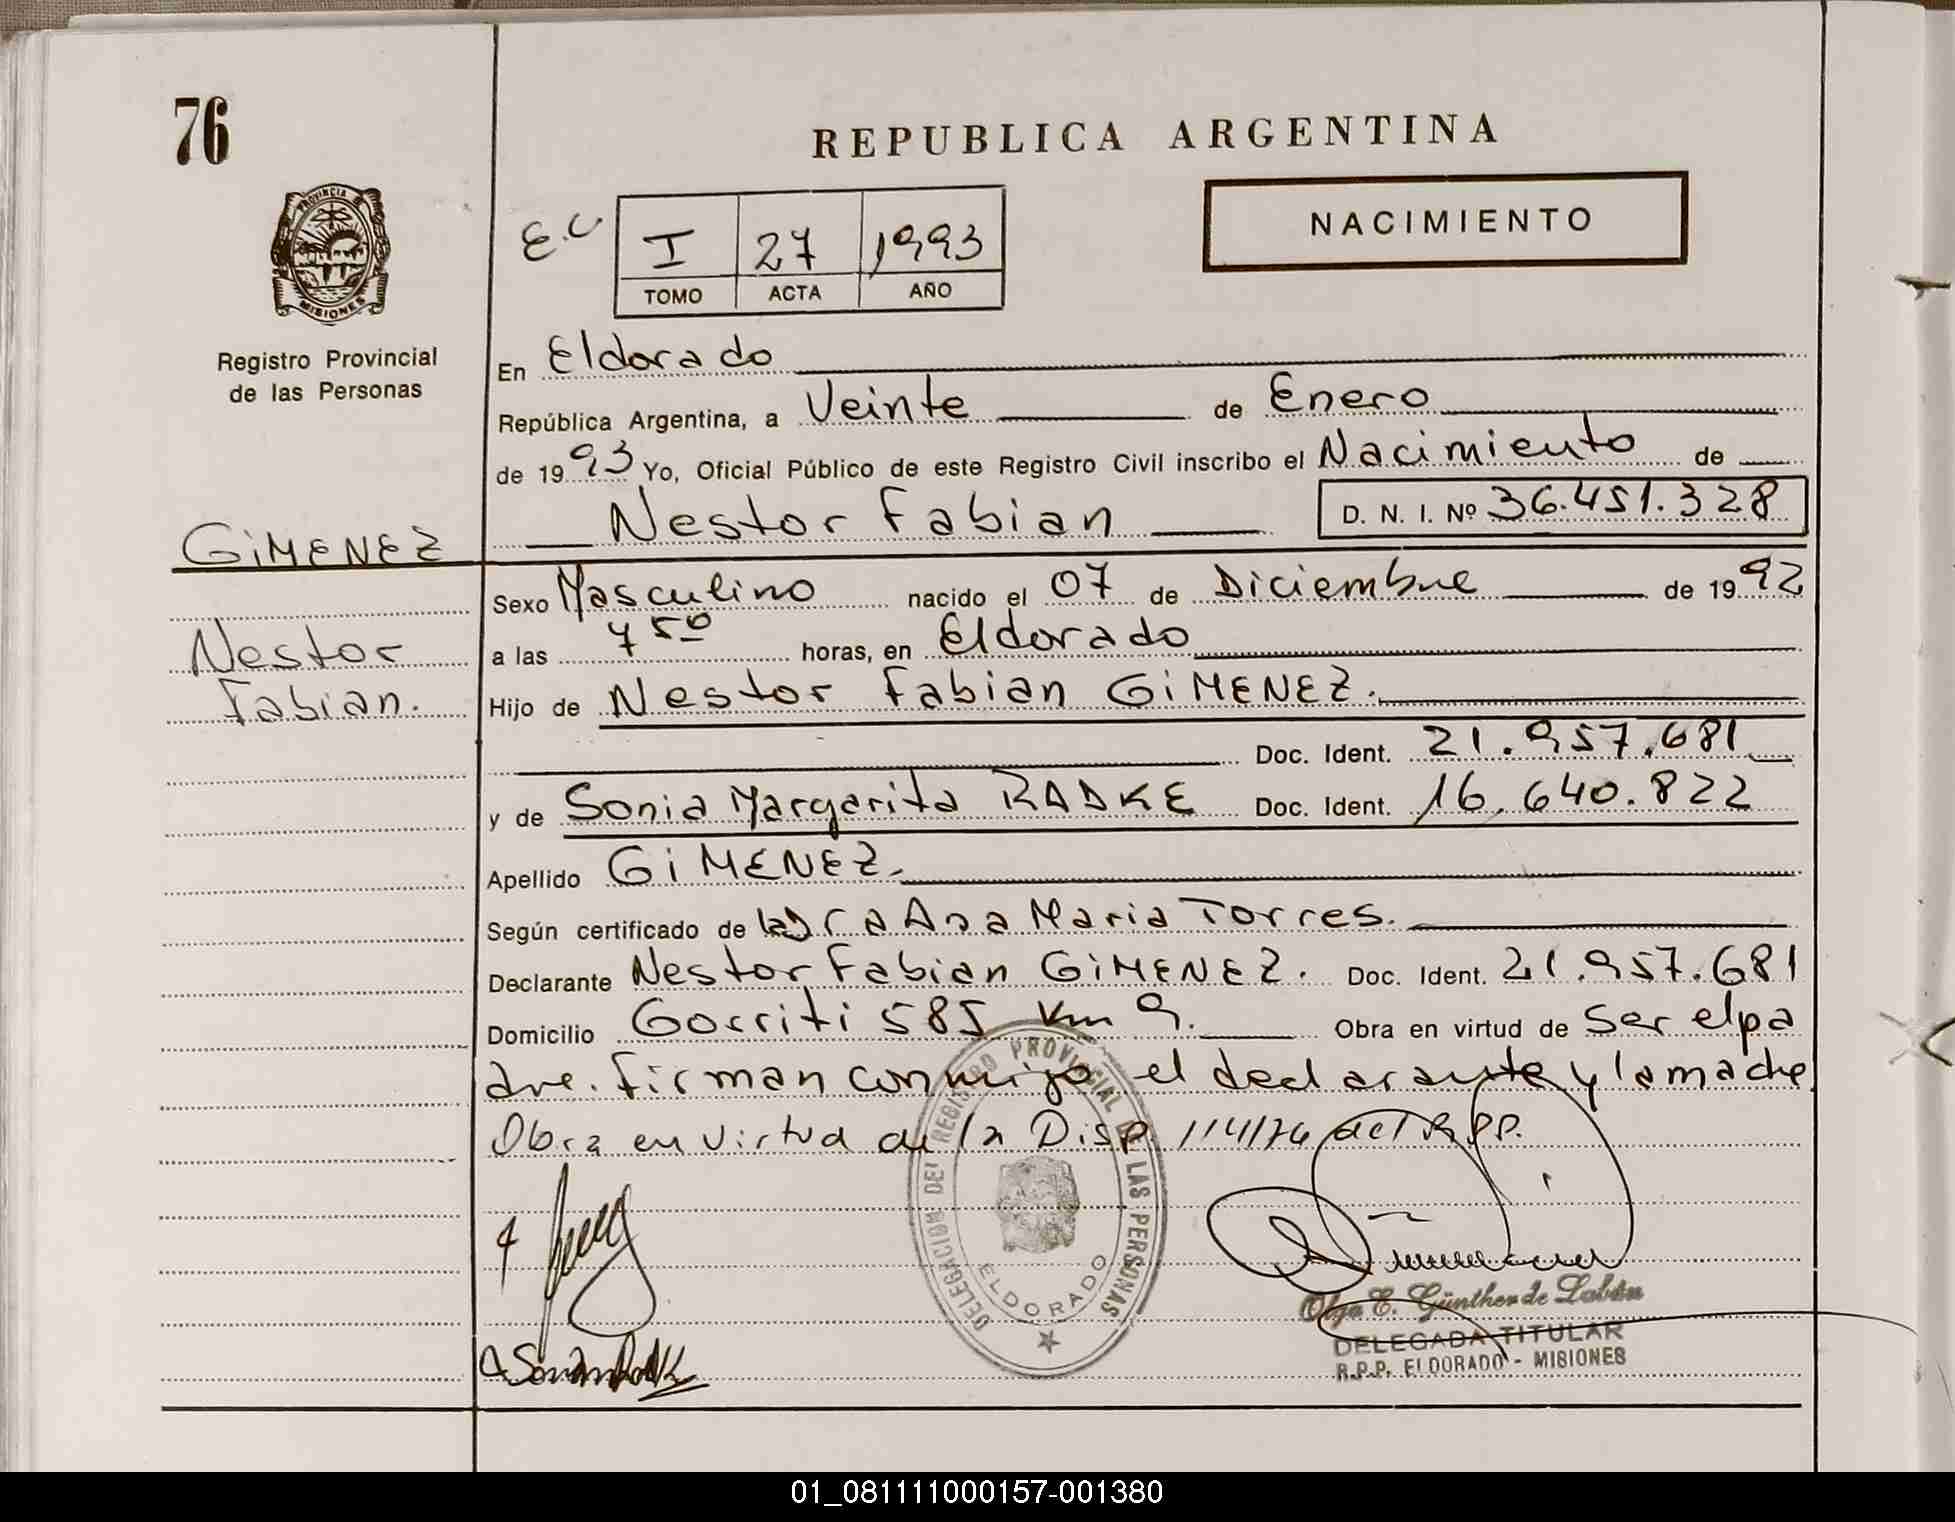 76
REPUBLICA ARGENTINA
PROVINCIA DE MISIONES
E.C
I 27 1993
TOMO ACTA AÑO
NACIMIENTO
Registro Provincial
de las Personas
En Eldorado
República Argentina, a Veinte de Enero
de 1993 Yo, Oficial Público de este Registro Civil inscribo el Nacimiento de
Nestor Fabian D. N. I. Nº 36.451.328
GiMENEZ
Nestor
Fabian.
Sexo Masculino nacido el 07 de Diciembre de 1992
a las 7 50 horas, en Eldorado
Hijo de Nestor Fabian GiMENEZ.
Doc. Ident. 21.957.681
y de Sonia Margarita RADKE Doc. Ident. 16.640.822
Apellido GiMENEZ.
Según certificado de la Dra Ana Maria Torres.
Declarante Nestor Fabian GiMENEZ. Doc. Ident. 21.957.681
Domicilio Gorriti 585 Km 9. Obra en virtud de Ser el pa
dre. firman conmigo el declarante y la madre
Obra en virtud de la Disp. 114/74 del R.P.P.
DELEGACION DEL REGISTRO PROVINCIAL DE LAS PERSONAS
ELDORADO
Olga E. Günther de Labán
DELEGADA TITULAR
R.P.P. ELDORADO - MISIONES
01_081111000157-001380